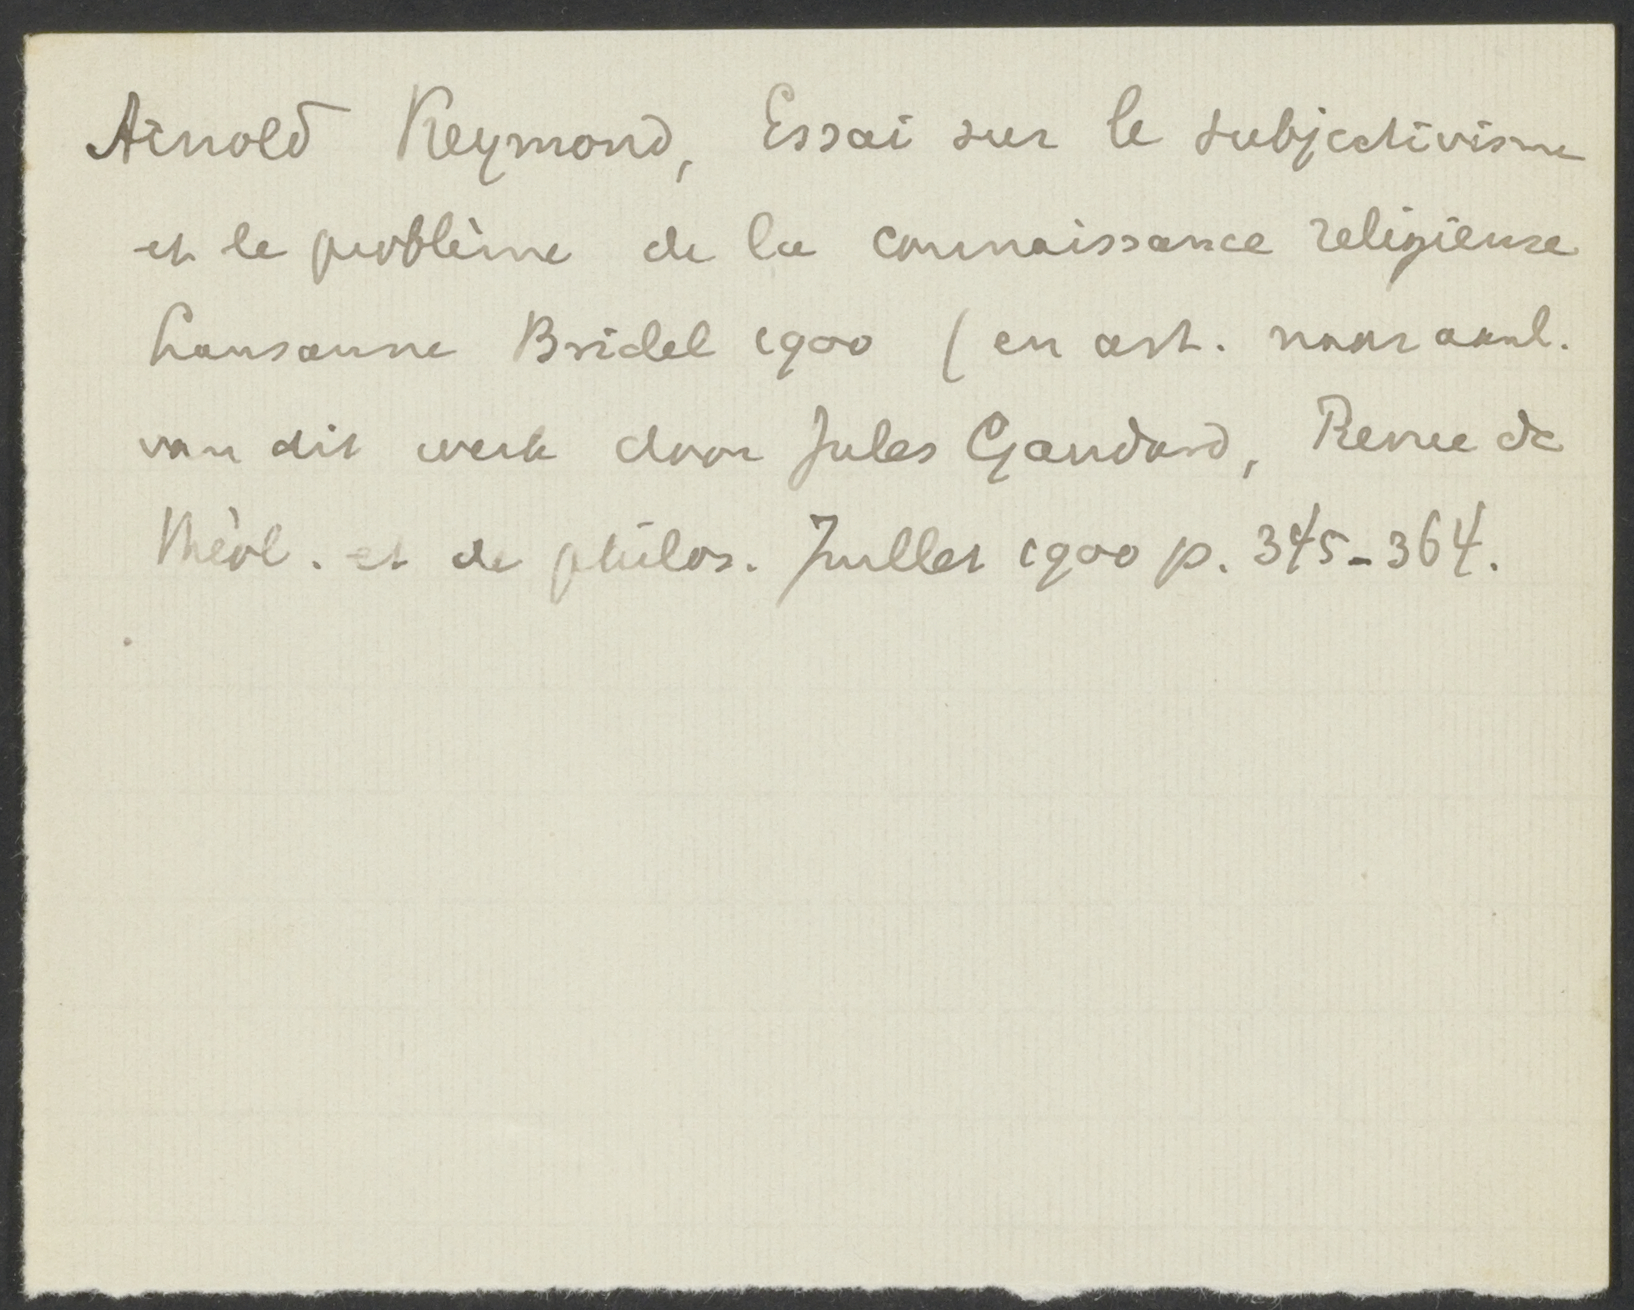 Arnold Reymond, Essai sur le subjectivisme
et le problème de la connaissance religieuse
Lausanne Bridel 1900 (en art. naar aanl.
van dit werk door Jules Gaudard, Revue de
Théol. et de philos. Juillet 1900 p. 345-364.